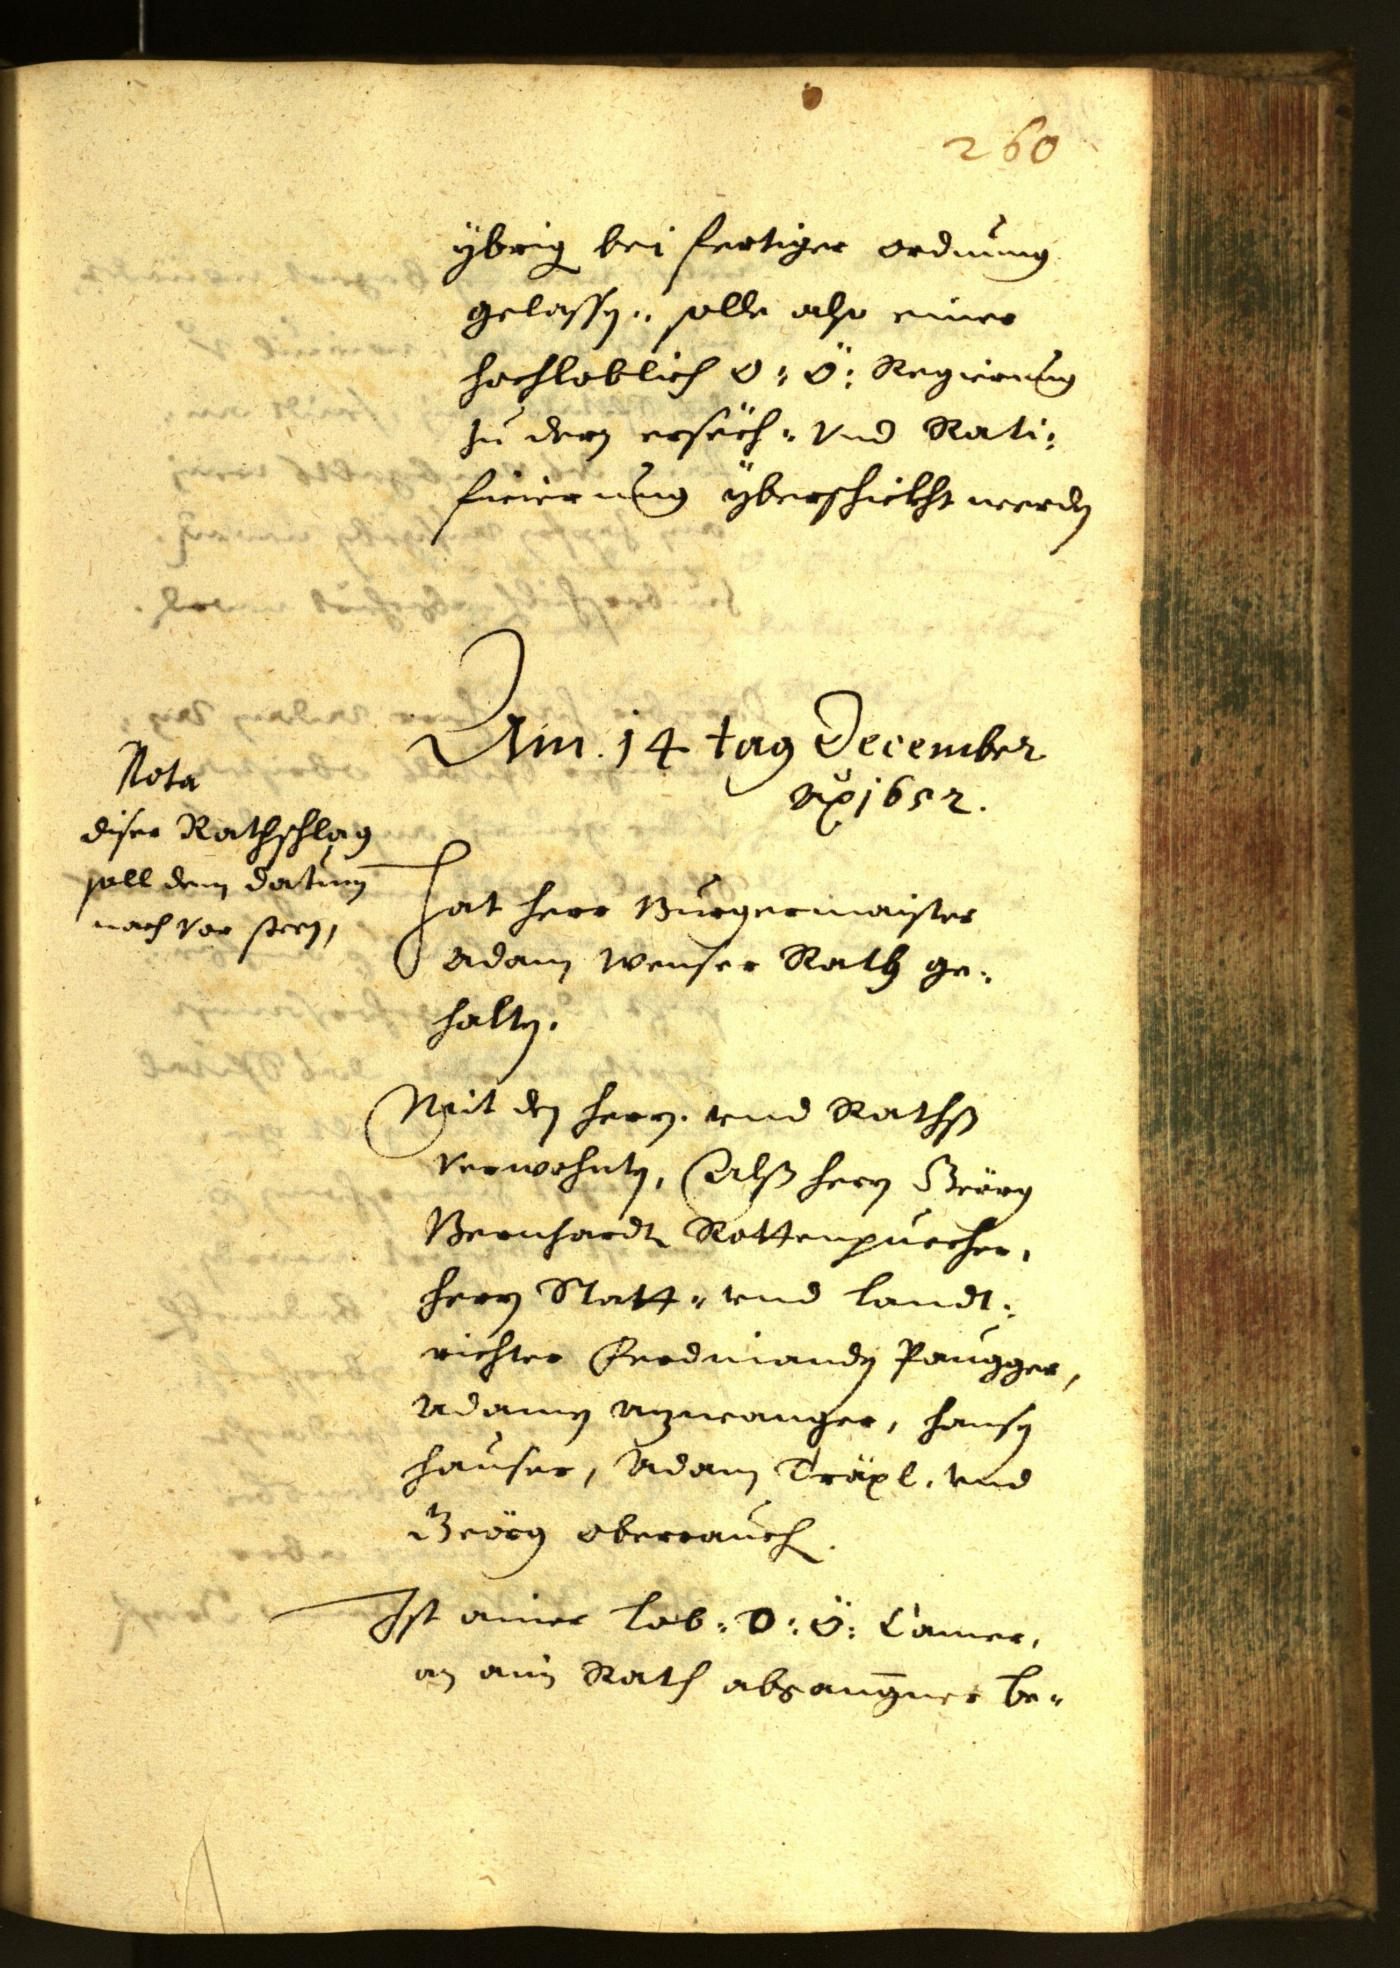 260
ÿbrig bei fertiger ordnung
gelassen, solle also einer
hochloblich O: Ö: Regierung
zu dern ersech- vnd Rati-
ficierung ÿberschickht werden
Am 14 tag December
Aõ 1652.
Nota
diser Rathschlag
soll dem datum
nach vor steen,
Hat herr Burgermaister
Adam Wenser Rath ge-
halten.
Mit den herrn vnd Rathß
verwohnten, Alß herrn Geörg
Bernhardt Rottenpuecher,
herrn Statt- vnd Landt-
richter Ferdinanden Paugger,
Adamen Azwanger, hansen
hauser, Adam Träpl, vnd
Geörg oberrauch.
Ist ainer lob: O: Ö: Camer,
an ain Rath abgangner be-